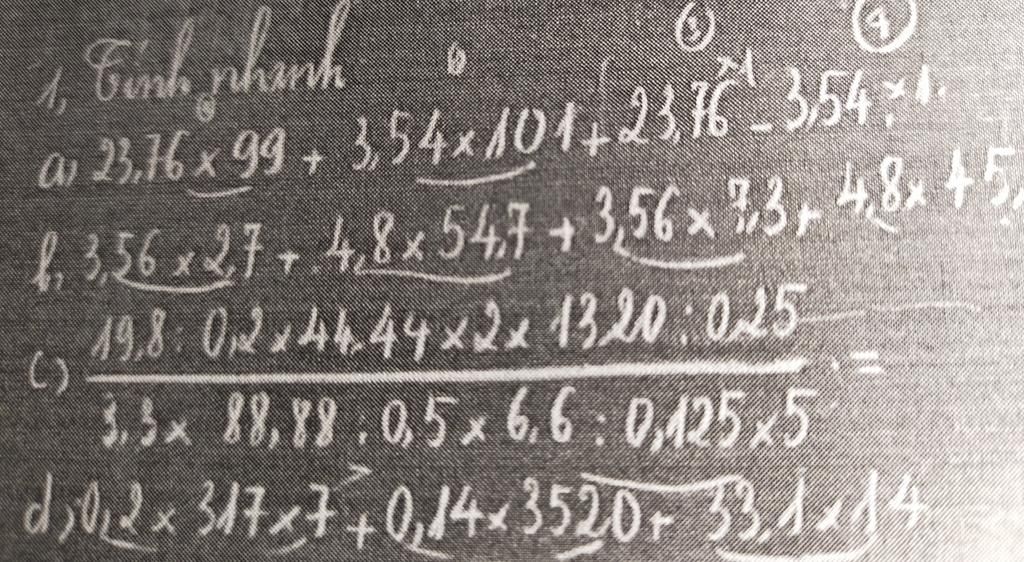 ③ ④
1, Tính nhanh
a) 23,76 × 99 + 3,54 × 101 + 23,76 ×1 - 3,54 × 1.
b, 3,56 × 2,7 + 4,8 × 54,7 + 3,56 × 7,3 + 4,8 × 45,
19,8 : 0,2 × 44,44 × 2 × 13,20 : 0,25
c) =
3,3 × 88,88 : 0,5 × 6,6 : 0,125 × 5
d, 0,2 × 317 × 7 + 0,14 × 3520 + 33,1 × 14